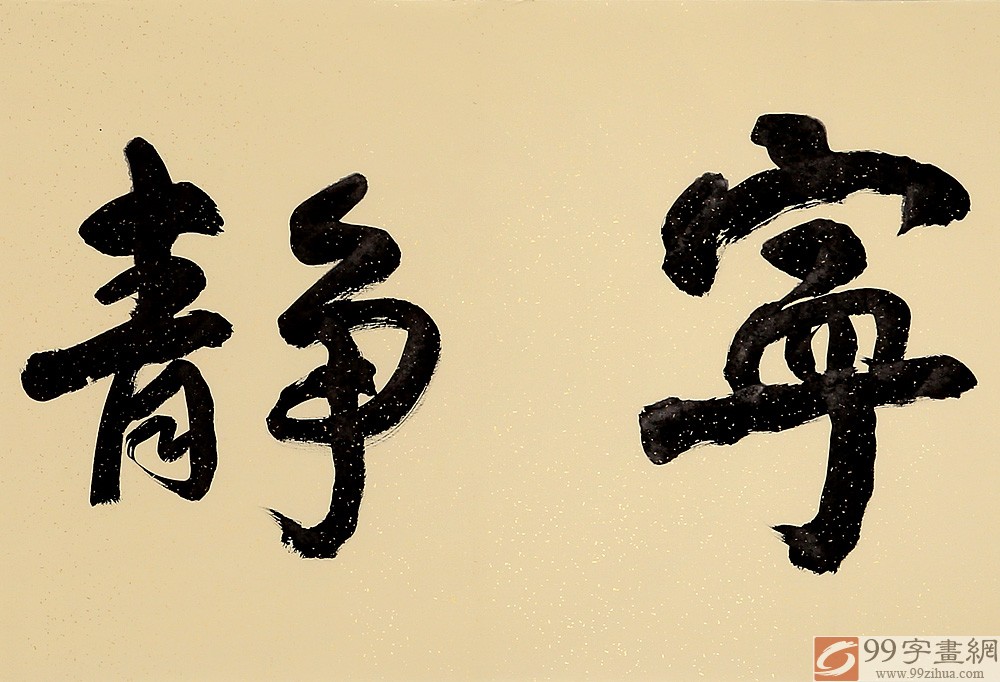 寧靜
99字畫網
www.99zihua.com